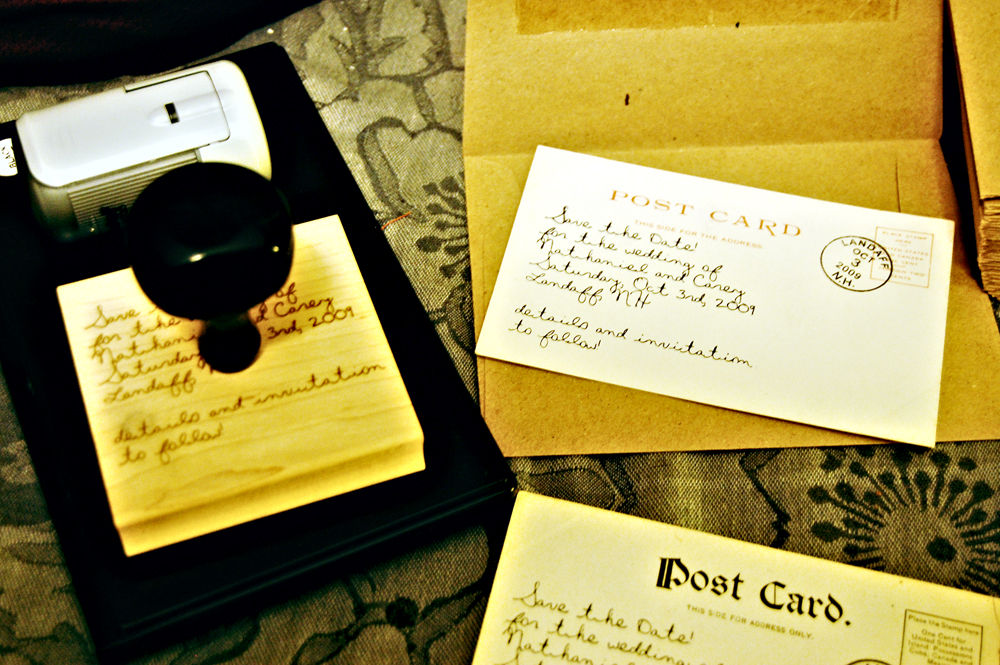 Save the Date!
for the wedding of
Nathaniel and Carey
Saturday, Oct 3rd, 2009
Landaff NH
details and invitation
to follow!
POST CARD
THIS SIDE FOR THE ADDRESS
LANDAFF
OCT
3
2009
N.H.
PLACE STAMP
HERE
Save
for the
Nathaniel and Carey
Saturday 3rd, 2009
Landaff
details and invitation
to follow!
Post Card.
THIS SIDE FOR ADDRESS ONLY.
Place the Stamp here
One Cent for
United States and
Island Possessions
Cuba, Canada
Save the Date!
for the wedding
Nathaniel